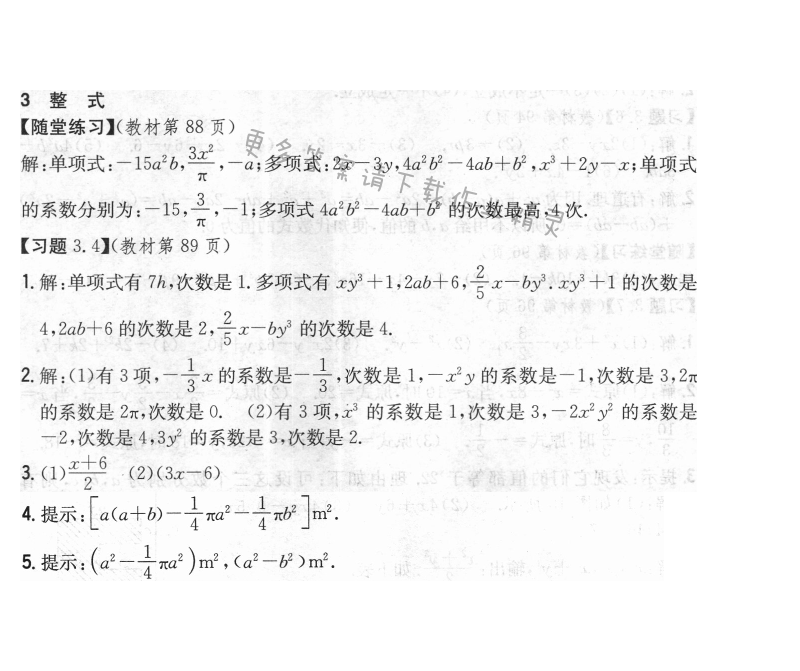 3 整 式
【随堂练习】(教材第 88 页)
解:单项式:-15a²b, 3x²/π, -a;多项式:2x-3y,4a²b²-4ab+b²,x³+2y-x;单项式
的系数分别为:-15, 3/π, -1;多项式 4a²b²-4ab+b² 的次数最高,4次.
【习题 3.4】(教材第 89 页)
1. 解:单项式有 7h,次数是 1. 多项式有 xy³+1,2ab+6, 2/5 x-by³. xy³+1 的次数是
4,2ab+6 的次数是 2, 2/5 x-by³ 的次数是 4.
2. 解:(1)有 3 项,-1/3 x 的系数是-1/3,次数是 1,-x²y 的系数是-1,次数是 3,2π
的系数是 2π,次数是 0. (2)有 3 项,x³ 的系数是 1,次数是 3,-2x²y² 的系数是
-2,次数是 4,3y² 的系数是 3,次数是 2.
3. (1) x+6/2 (2)(3x-6)
4. 提示:[a(a+b)-1/4 πa²-1/4 πb²]m².
5. 提示:(a²-1/4 πa²)m²,(a²-b²)m².
更多答案请下载作业精灵